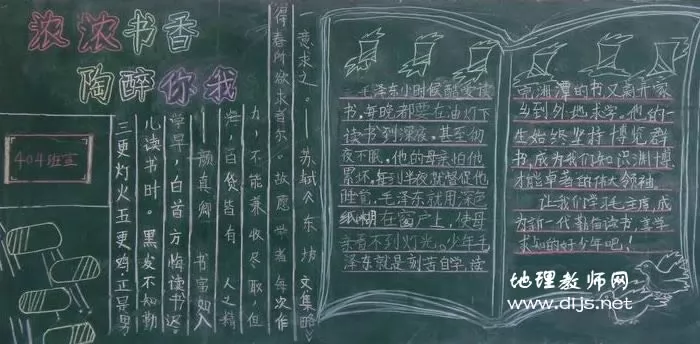 浓浓书香
陶醉你我
404班宣
三更灯火五更鸡,正是男
儿读书时。黑发不知勤
学早,白首方悔读书迟。
——颜真卿 书富如入
海,百货皆有 人之精
力,不能兼收尽取,但
得春所欲求者尔。故愿学者每次作
一意求之。——苏轼《东坡文集略》
毛泽东小时候酷爱读
书,每晚都要在油灯下
读书到深夜,甚至彻
夜不眠,他的母亲怕他
累坏,每到半夜就督促他
睡前,毛泽东就用深色
纸糊在窗户上,使母
亲看不到灯光。少年毛
泽东就是刻苦自学,读
完湘潭的书又离开家
乡到外地求学。他的一
生始终坚持博览群
书,成为我们知识渊博
才能卓著的伟大领袖。
让我们学毛主席,成
为新一代勤自读书,
求知的好少年吧!
地理教师网
www.dljs.net